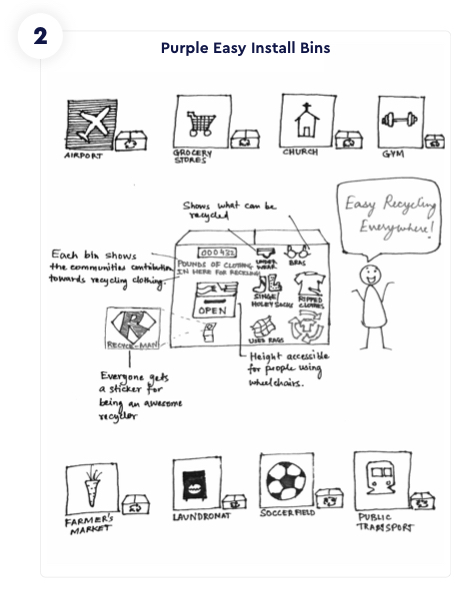 2
Purple Easy Install Bins
AIRPORT
GROCERY
STORES
CHURCH
GYM
Shows what can be
recycled
Easy Recycling
Everywhere!
Each bin shows
the communities contribution
towards recycling clothing.
000432
POUNDS OF CLOTHING
IN HERE FOR RECYCLING
UNDER
WEAR
BRAS
SINGLE/
HOLEY SOCKS
RIPPED
CLOTHES
OPEN
USED RAGS
R
RECYCLE-MAN
Height accessible
for people using
wheelchairs.
Everyone gets
a sticker for
being an awesome
recycler
FARMER'S
MARKET
LAUNDROMAT
SOCCER FIELD
PUBLIC
TRANSPORT